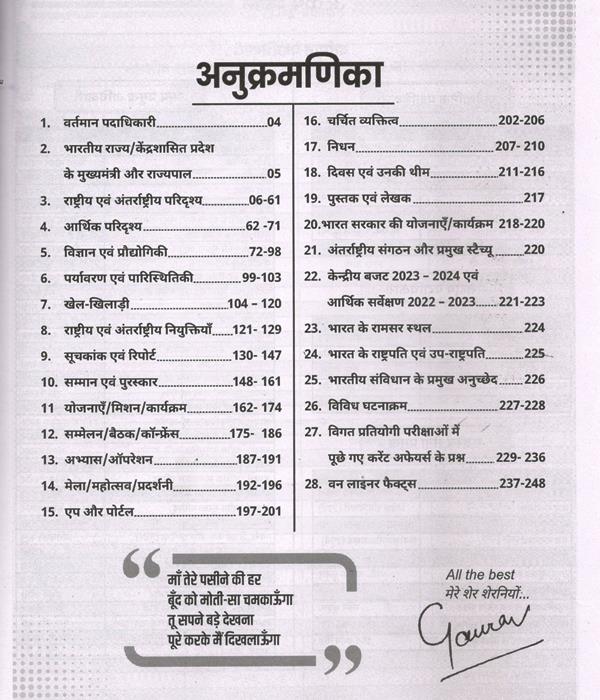 अनुक्रमणिका
1. वर्तमान पदाधिकारी........................04
2. भारतीय राज्य/केंद्रशासित प्रदेश
के मुख्यमंत्री और राज्यपाल................05
3. राष्ट्रीय एवं अंतर्राष्ट्रीय परिदृश्य............06-61
4. आर्थिक परिदृश्य........................62 -71
5. विज्ञान एवं प्रौद्योगिकी.....................72-98
6. पर्यावरण एवं पारिस्थितिकी.............99-103
7. खेल-खिलाड़ी.........................104 – 120
8. राष्ट्रीय एवं अंतर्राष्ट्रीय नियुक्तियाँ......121- 129
9. सूचकांक एवं रिपोर्ट....................130- 147
10. सम्मान एवं पुरस्कार....................148- 161
11 योजनाएँ/मिशन/कार्यक्रम............162- 174
12. सम्मेलन/बैठक/कॉन्फ्रेंस.............175- 186
13. अभ्यास/ऑपरेशन.....................187-191
14. मेला/महोत्सव/प्रदर्शनी................192-196
15. एप और पोर्टल..........................197-201
16. चर्चित व्यक्तित्व..........................202-206
17. निधन....................................207- 210
18. दिवस एवं उनकी थीम.................211-216
19. पुस्तक एवं लेखक............................217
20.भारत सरकार की योजनाएँ/कार्यक्रम 218-220
21. अंतर्राष्ट्रीय संगठन और प्रमुख स्टैच्यू.......220
22. केन्द्रीय बजट 2023 – 2024 एवं
आर्थिक सर्वेक्षण 2022 – 2023......221-223
23. भारत के रामसर स्थल........................224
24. भारत के राष्ट्रपति एवं उप-राष्ट्रपति..........225
25. भारतीय संविधान के प्रमुख अनुच्छेद......226
26. विविध घटनाक्रम.......................227-228
27. विगत प्रतियोगी परीक्षाओं में
पूछे गए करेंट अफेयर्स के प्रश्न.......229- 236
28. वन लाइनर फैक्ट्स.....................237-248
माँ तेरे पसीने की हर
बूँद को मोती-सा चमकाऊँगा
तू सपने बड़े देखना
पूरे करके मैं दिखलाऊँगा
All the best
मेरे शेर शेरनियों...
Gaurav